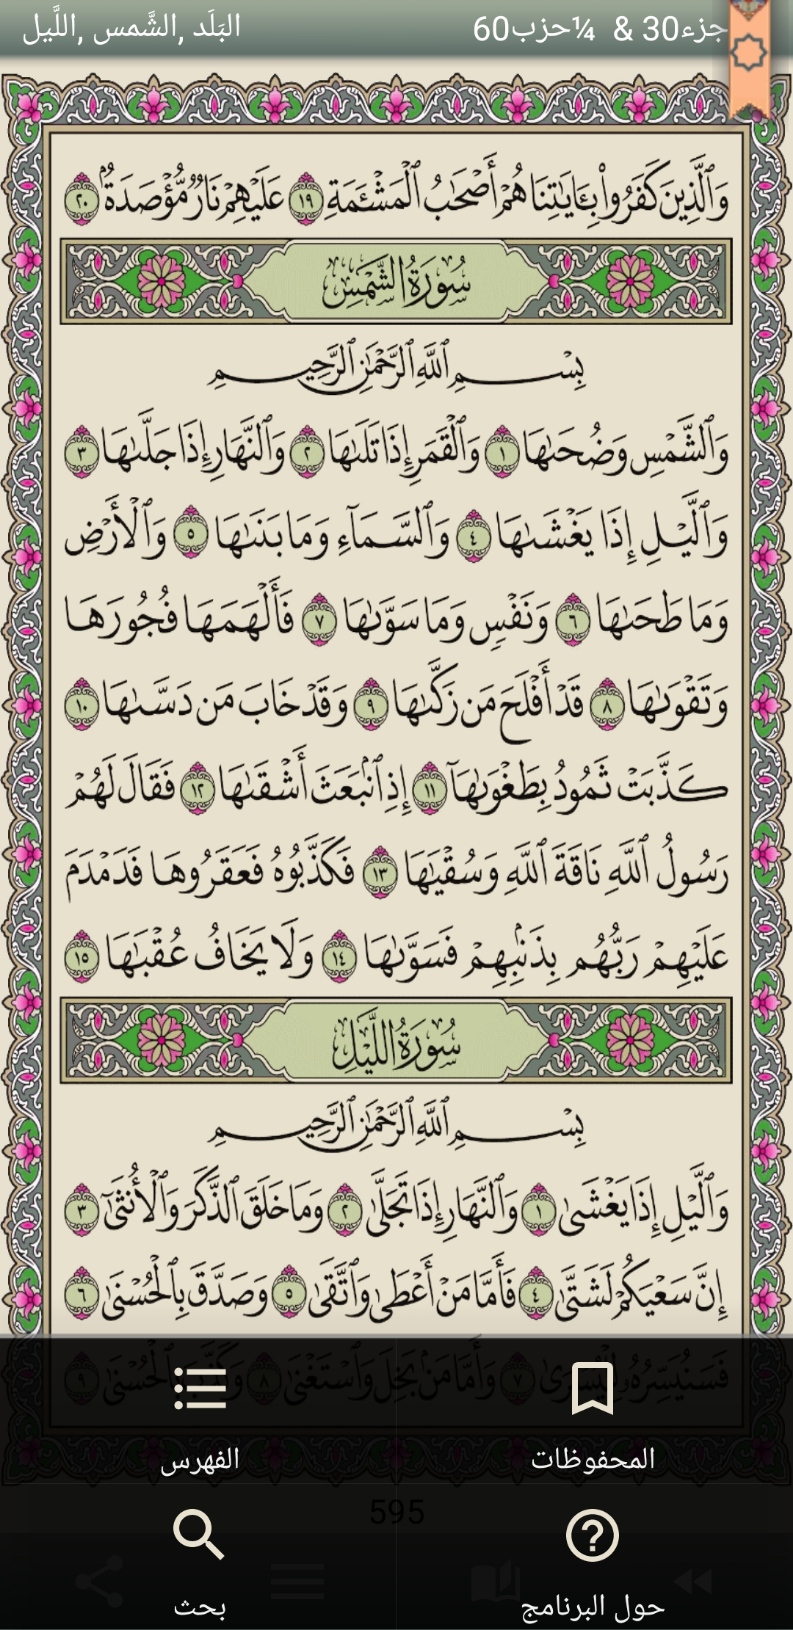 جزء30 & ¼حزب60 البَلَد ,الشَّمس ,اللَّيل
وَٱلَّذِينَ كَفَرُوا۟ بِـَٔايَـٰتِنَا هُمْ أَصْحَـٰبُ ٱلْمَشْـَٔمَةِ ١٩ عَلَيْهِمْ نَارٌ مُّؤْصَدَةٌۢ ٢٠
سُورَةُ الشَّمْسِ
بِسْمِ ٱللَّهِ ٱلرَّحْمَـٰنِ ٱلرَّحِيمِ
وَٱلشَّمْسِ وَضُحَىٰهَا ١ وَٱلْقَمَرِ إِذَا تَلَىٰهَا ٢ وَٱلنَّهَارِ إِذَا جَلَّىٰهَا ٣
وَٱلَّيْلِ إِذَا يَغْشَىٰهَا ٤ وَٱلسَّمَآءِ وَمَا بَنَىٰهَا ٥ وَٱلْأَرْضِ
وَمَا طَحَىٰهَا ٦ وَنَفْسٍ وَمَا سَوَّىٰهَا ٧ فَأَلْهَمَهَا فُجُورَهَا
وَتَقْوَىٰهَا ٨ قَدْ أَفْلَحَ مَن زَكَّىٰهَا ٩ وَقَدْ خَابَ مَن دَسَّىٰهَا ١٠
كَذَّبَتْ ثَمُودُ بِطَغْوَىٰهَآ ١١ إِذِ ٱنۢبَعَثَ أَشْقَىٰهَا ١٢ فَقَالَ لَهُمْ
رَسُولُ ٱللَّهِ نَاقَةَ ٱللَّهِ وَسُقْيَـٰهَا ١٣ فَكَذَّبُوهُ فَعَقَرُوهَا فَدَمْدَمَ
عَلَيْهِمْ رَبُّهُم بِذَنۢبِهِمْ فَسَوَّىٰهَا ١٤ وَلَا يَخَافُ عُقْبَـٰهَا ١٥
سُورَةُ اللَّيْلِ
بِسْمِ ٱللَّهِ ٱلرَّحْمَـٰنِ ٱلرَّحِيمِ
وَٱلَّيْلِ إِذَا يَغْشَىٰ ١ وَٱلنَّهَارِ إِذَا تَجَلَّىٰ ٢ وَمَا خَلَقَ ٱلذَّكَرَ وَٱلْأُنثَىٰٓ ٣
إِنَّ سَعْيَكُمْ لَشَتَّىٰ ٤ فَأَمَّا مَنْ أَعْطَىٰ وَٱتَّقَىٰ ٥ وَصَدَّقَ بِٱلْحُسْنَىٰ ٦
فَسَنُيَسِّرُهُۥ لِلْيُسْرَىٰ ٧ وَأَمَّا مَنۢ بَخِلَ وَٱسْتَغْنَىٰ ٨ وَكَذَّبَ بِٱلْحُسْنَىٰ ٩
المحفوظات الفهرس
595
حول البرنامج بحث